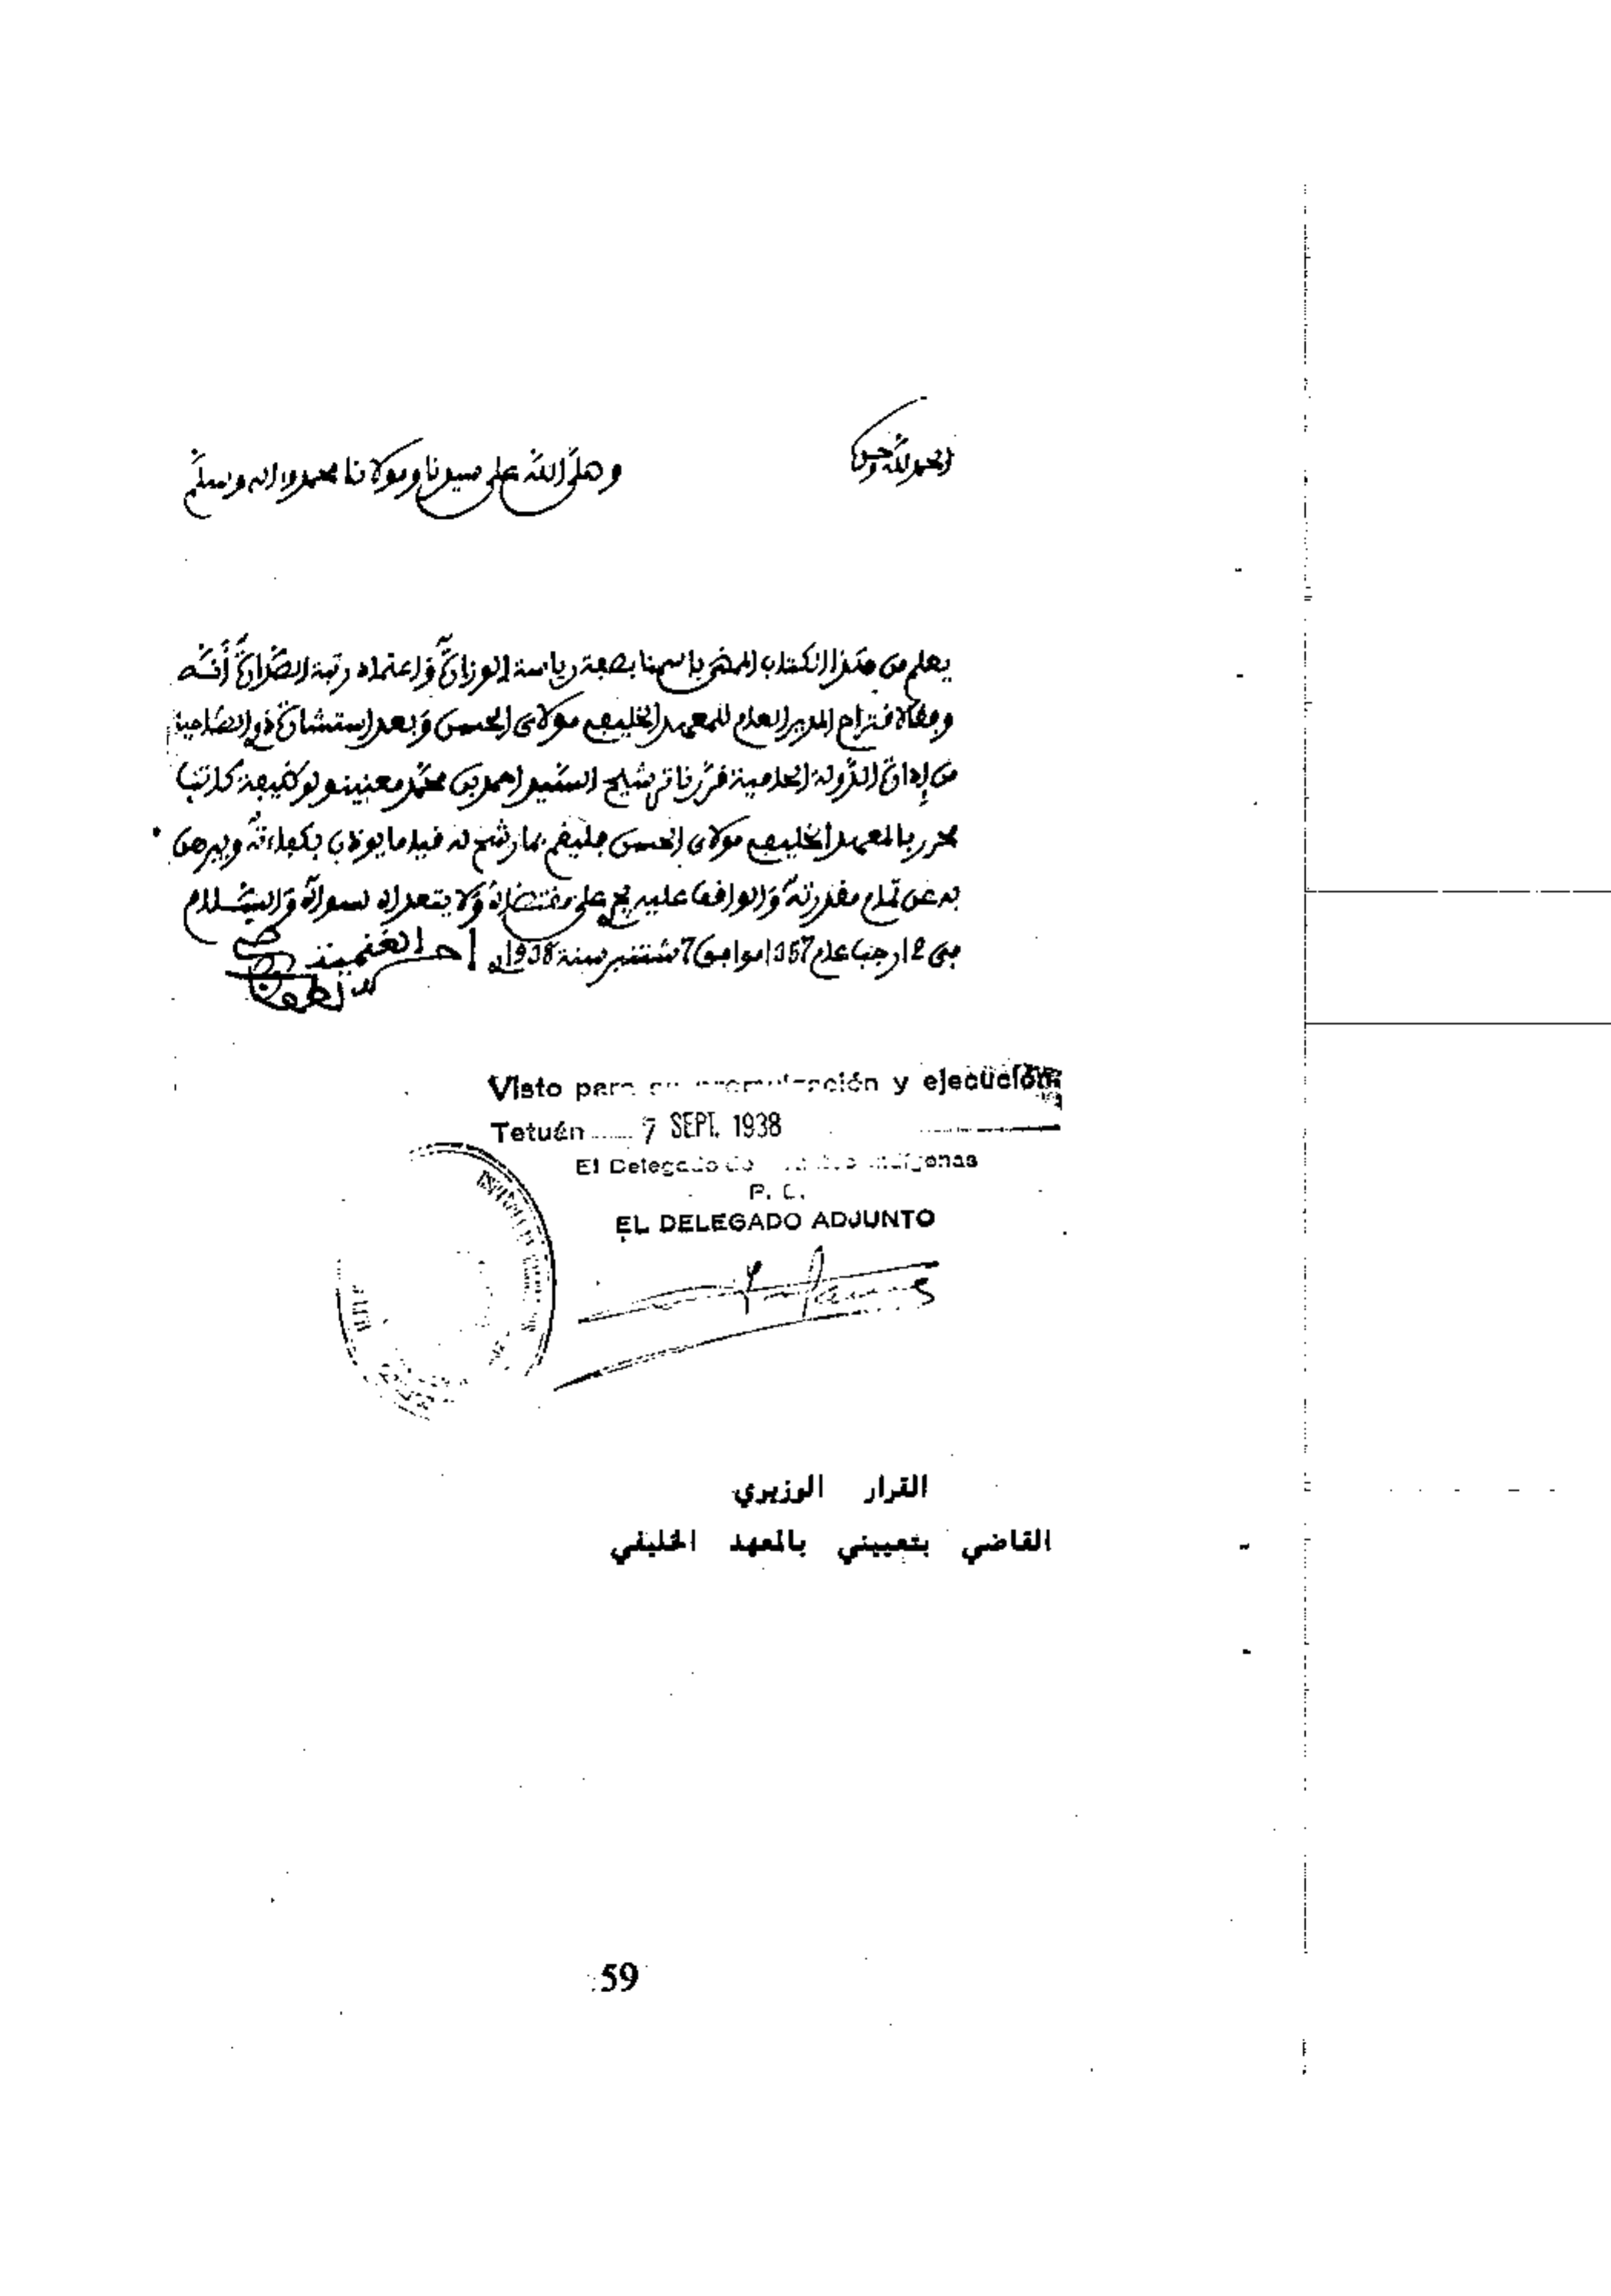 الحمد لله وحده
وصلى الله على سيدنا ومولانا محمد وآله وسلم
يعلم من هذا الكتاب الممضى باسمنا بصفة رياسة الوزارة واعتماد رتبة الصدارة أنه
وفقا لاقتراح المدير العام للمعهد الخليفي مولاي الحسن وبعد استشارة ذوي الصلاحية
من إدارة الدولة الحامية قررنا ترشيح السيد احمد بن محمد معنينو لوظيفة كاتب
محرر بالمعهد الخليفي مولاي الحسن فليقم بما رشح له قياما يوذن بكفاءته ويبرهن
به عن تمام مقدرته والواقف عليه يجري على مقتضاه ولا يتعداه لسواه والسلام
في 12 رجب عام 1357 موافق 7 شتنبر سنة 1938م احمد الغنمية
Visto para su promulgación y ejecución
Tetuán 7 SEPT. 1938
El Delegado de Indígenas
EL DELEGADO ADJUNTO
القرار الوزيري
القاضي بتعييني بالمعهد الخليفي
59